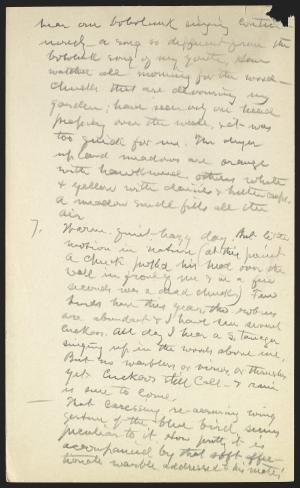 hear one bobolink singing contin-
uously - a song so different from the
bobolink song of my youth. Have
watched all morning for the wood-
chucks that are devouring my
garden; have seen only one head
peeping over the wall, & it was
too quick for me. The dryer
upland meadows are orange
with hawkweed, others white
& yellow with daisies & butter cups.
A meadow smell fills all the
air
7. Warm, quiet hazy day. But little
motion in nature (at this point
a chuck poked his head over the
wall in front of me & in a few
seconds was a dead chuck.) Few
birds here this year, tho robins
are abundant & I have seen several
Cuckoos. All day I hear a S. Tanager
singing up in the woods above me.
But no warblers or vireos, or thrushes
yet. Cuckoos still call - & rain
is due to come.
That caressing re-assuring wing
gesture of the blue bird seems
peculiar to it. How pretty it is
accompanied by that soft affec-
tionate warble addressed to his mate!